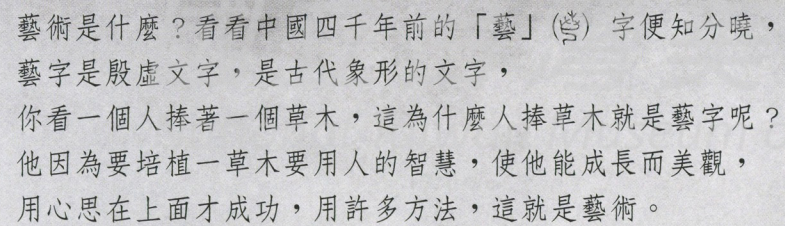 藝術是什麼？看看中國四千年前的「藝」（）字便知分曉，
藝字是殷虛文字，是古代象形的文字，
你看一個人捧著一個草木，這為什麼人捧草木就是藝字呢？
他因為要培植一草木要用人的智慧，使他能成長而美觀，
用心思在上面才成功，用許多方法，這就是藝術。